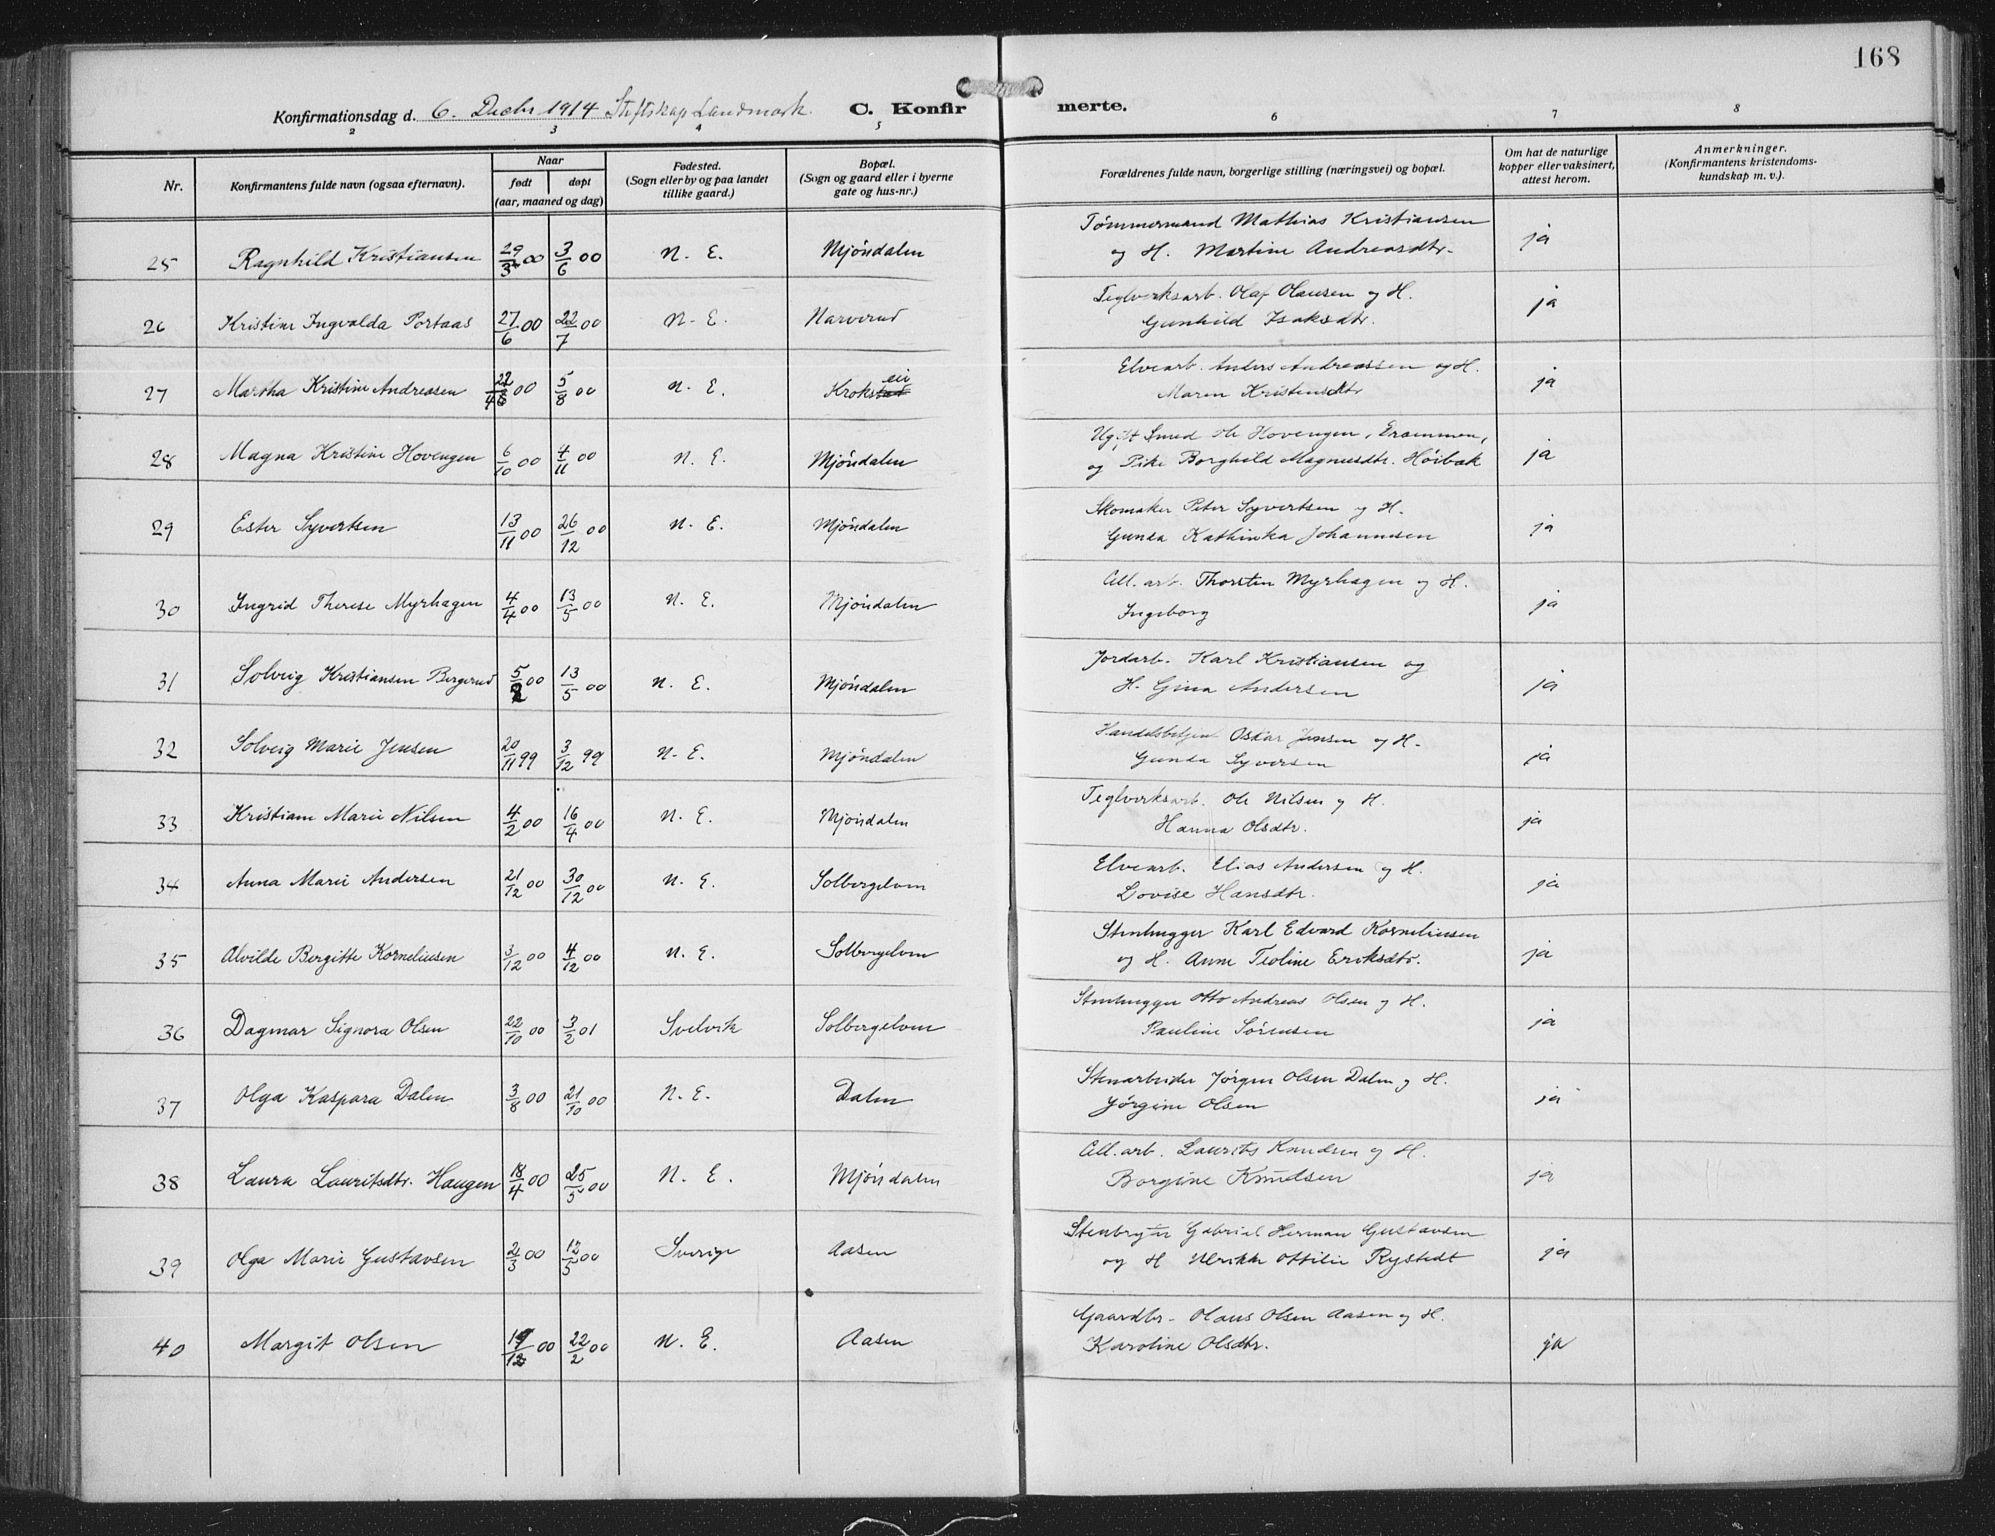 168
Konfirmationsdag d. 6. Decbr 1914 Stiftskap Landmark. C. Konfirmerte.
2 3 4 5 6 7 8
Nr. Konfirmantens fulde navn (ogsaa efternavn). Naar født døpt (aar, maaned og dag) Fødested. (Sogn eller by og paa landet tillike gaard.) Bopæl. (Sogn og gaard eller i byerne gate og hus-nr.) Forældrenes fulde navn, borgerlige stilling (næringsvei) og bopæl. Om hat de naturlige kopper eller vaksinert, attest herom. Anmerkninger. (Konfirmantens kristendoms-kundskap m. v.).
25 Ragnhild Kristiansen 29/3 00 3/6 00 N. E. Mjöndalen Tømmermand Mathias Kristiansen ja
og H. Martine Andreasdtr.
26 Kristine Ingvalda Portaas 27/6 00 22/7 00 N. E. Narverud Teglverksarb. Olaf Olausen og H. ja
Gunhild Isaksdtr.
27 Martha Kristine Andreasen 22/4 00 5/8 00 N. E. Krokstadei Elvearb. Anders Andreassen og H. ja
Maren Kristensdtr
28 Magna Kristine Hovengen 6/10 00 4/11 00 N. E. Mjöndalen Ugift Smed Ole Hovengen, Drammen, ja
og Pike Borghild Magnusdtr. Höibak
29 Ester Syvertsen 13/11 00 26/12 00 N. E. Mjöndalen Skomaker Peter Syvertsen og H. ja
Gunda Kathinka Johannesen
30 Ingrid Therese Myrhagen 4/4 00 13/5 00 N. E. Mjöndalen All. arb. Thorsten Myrhagen og H. ja
Ingeborg
31 Solveig Kristiansen Bergerud 5/2 00 13/5 00 N. E. Mjöndalen Jordarb. Karl Kristiansen og ja
H. Gina Andersen
32 Solveig Marie Jensen 20/11 99 3/12 99 N. E. Mjöndalen Handelsbetjen Oskar Jensen og H. ja
Gunda Syversen
33 Kristiane Marie Nilsen 4/2 00 16/4 00 N. E. Mjöndalen Teglverksarb. Ole Nilsen og H. ja
Hanna Olsdtr.
34 Anna Marie Andersen 21/12 00 30/12 00 N. E. Solbergelven Elvearb. Elias Andersen og H. ja
Lovise Hansdtr.
35 Alvilde Bergitte Korneliusen 3/12 00 4/12 00 N. E. Solbergelven Stenhugger Karl Edvard Korneliusen ja
og H. Anne Teoline Eriksdtr.
36 Dagmar Signora Olsen 22/10 00 3/2 01 Svelvik Solbergelven Stenhugger Otto Andreas Olsen og H. ja
Pauline Sörensen
37 Olga Kaspara Dalen 3/8 00 21/10 00 N. E. Dalen Stenarbeider Jörgen Olsen Dalen og H. ja
Jörgine Olsen
38 Laura Lauritsdtr. Haugen 18/4 00 25/5 00 N. E. Mjöndalen All. arb. Laurits Knudsen og H. ja
Borgine Knudsen
39 Olga Marie Gustavsen 2/3 00 12/5 00 Sverige Aasen Stenbryter Gabriel Herman Gustavsen ja
og H Ulrikke Ottilie Rystedt
40 Margit Olsen 19/12 00 22/2 00 N. E. Aasen Gaardbr. Olaus Olsen Aasen og H. ja
Karoline Olsdtr.